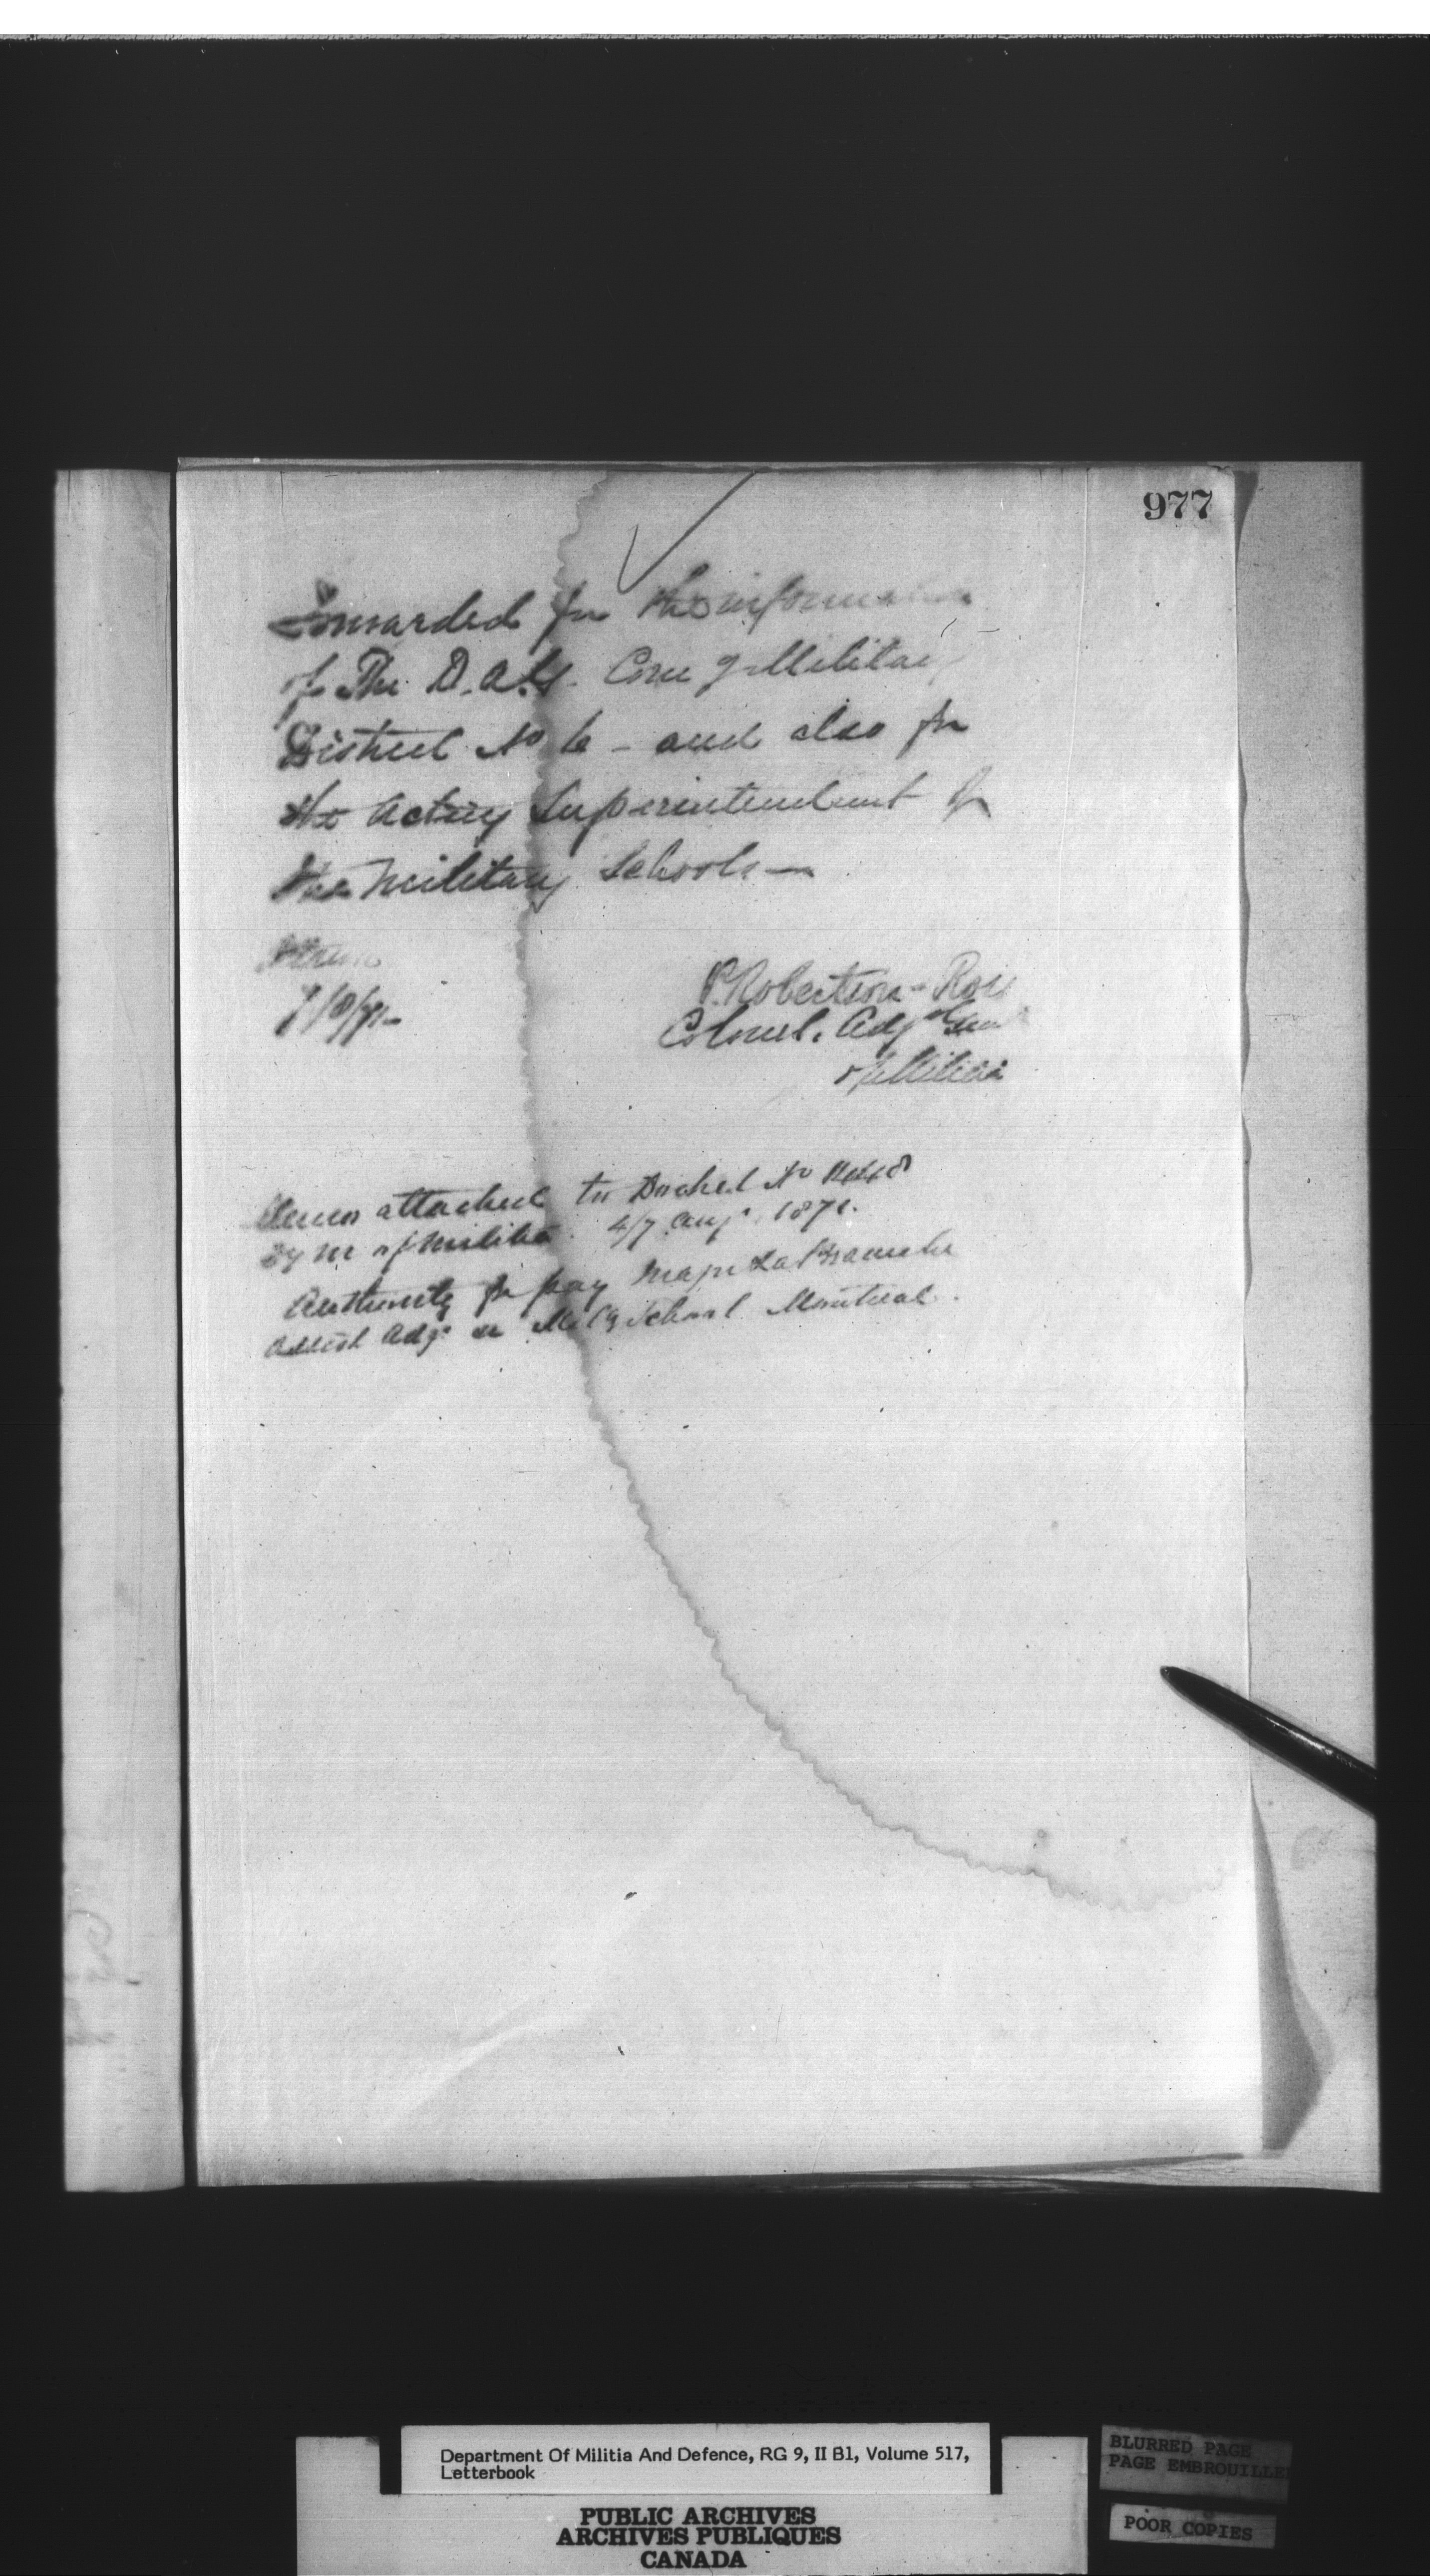 977
Forwarded for the information
of The D.A.G. Com g Military
District No 6 - and also for
the Acting Superintendent of
the Military Schools —
Ottawa
7/8/71 -
P. Robertson-Ross
Colonel. Adjt Genl
of Militia
Memo attached to Docket No
by M of Militia 4/7 Augt 1871.
Authority for pay Major LaBranche
Assist Adjt in Mily School Montreal.
Department Of Militia And Defence, RG 9, II B1, Volume 517,
Letterbook
PUBLIC ARCHIVES
ARCHIVES PUBLIQUES
CANADA
BLURRED PAGE
PAGE EMBROUILLEE
POOR COPIES